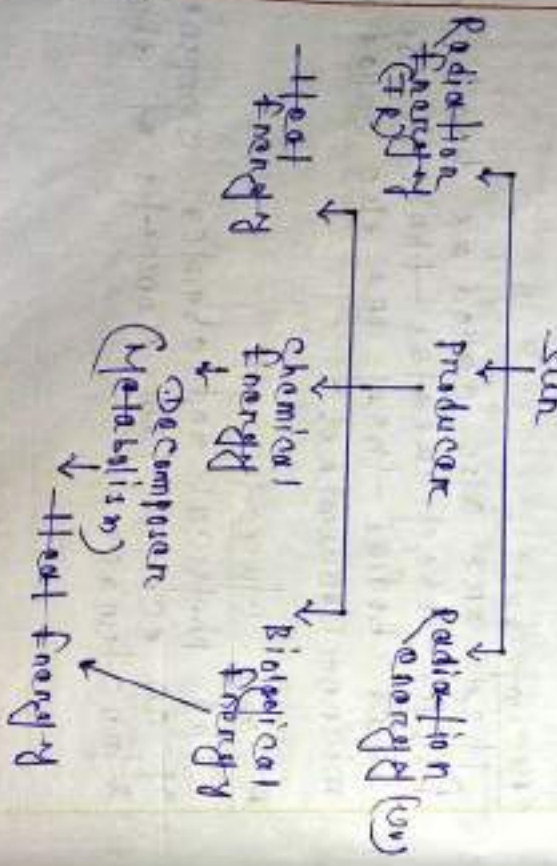 Sun
Radiation
Energy
(IR)
Producer
Radiation
energy (UV)
Heat
Energy
Chemical
Energy
Biological
Energy
Decomposer
(Metabolism)
Heat Energy